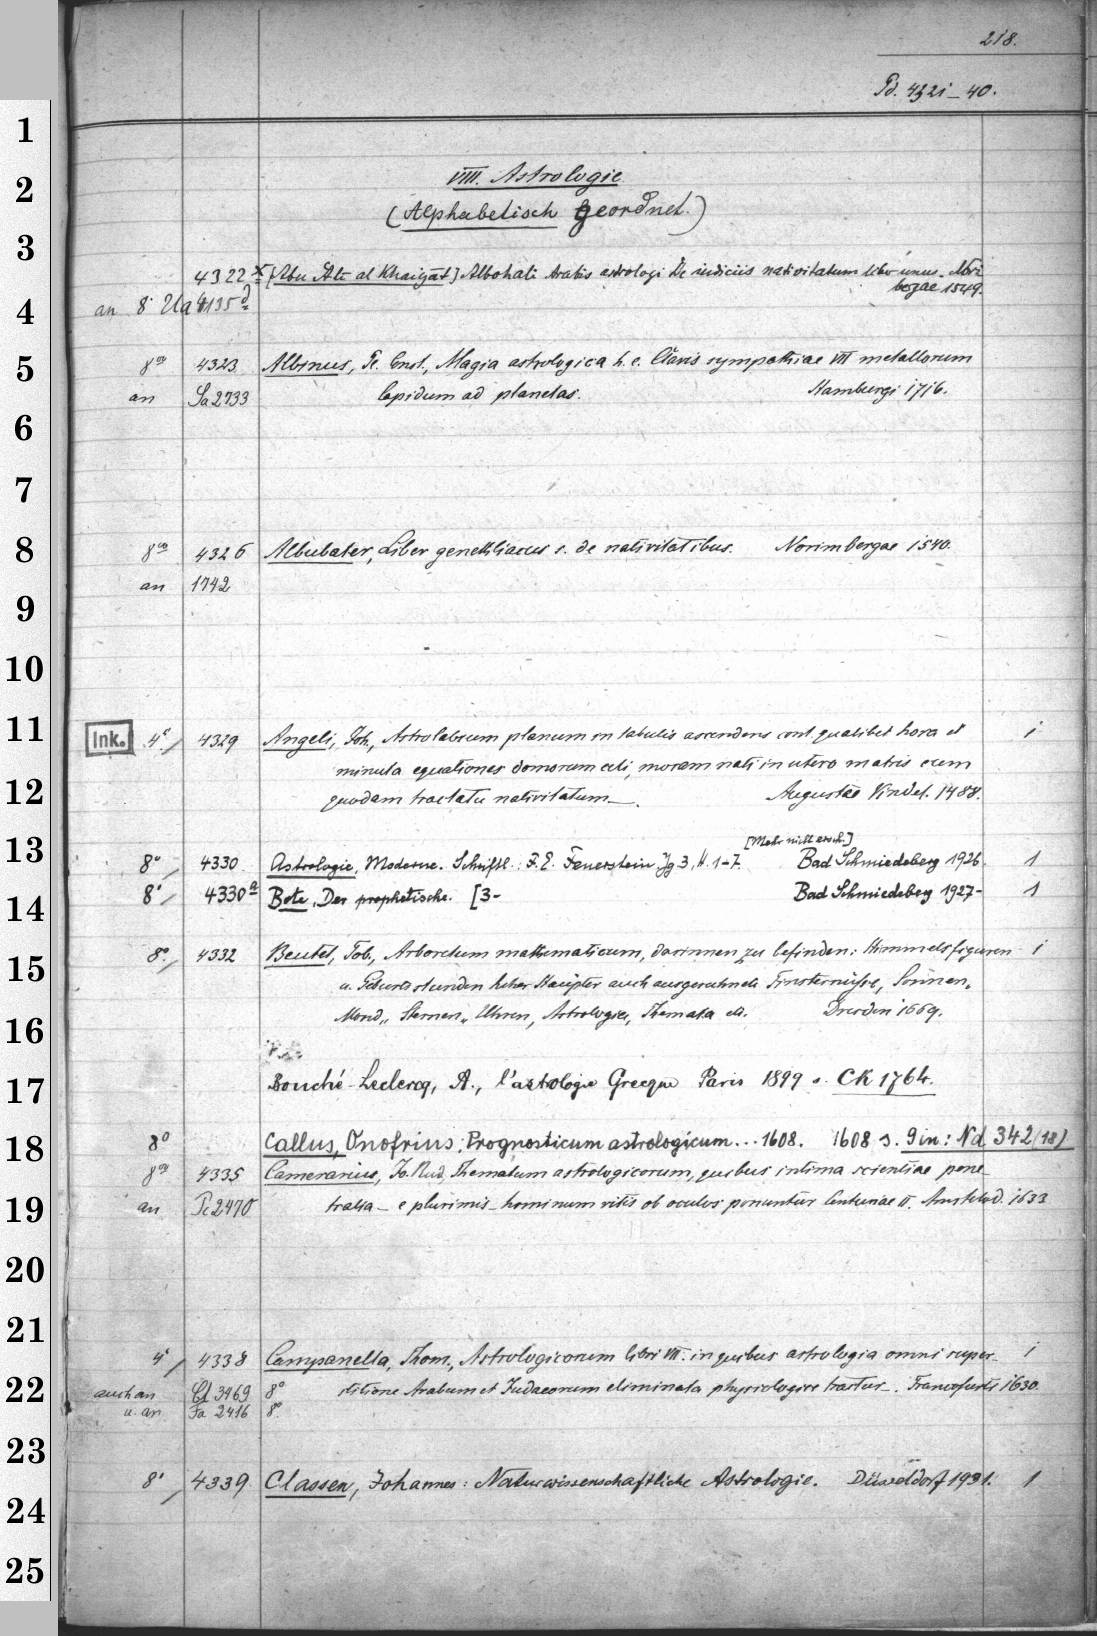 218.
Pd. 4321-40.
VIII. Astrologie
(Alphabetisch geordnet.)
4322 x [Abu Ali al Khaigat] Albohali Arabis astrologi De iudiciis nativitatum liber unus. Nori
bergae 1549.
an 8° 4135 d
8vo 4323 Albinus, Pe. Const., Magia astrologica h. e. Clavis sympathiae VII metallorum
an Sa 2733 lapidum ad planetas. Hamburgi 1716.
8vo 4326 Albubater, Liber genethliacus s. de nativitatibus. Norimbergae 1540.
an 1742
Ink. 4° 4329 Angeli, Joh., Astrolabium planum in tabulis ascendens cont. qualibet hora et 1
minuta equationes domorum celi, moram nati in utero matris cum
quodam tractatu nativitatum —. Augustae Vindel. 1488.
[Mehr nicht ersch.]
8° 4330 Astrologie, Moderne. Schriftl.: F. E. Feuerstein Jg 3, H. 1-7. Bad Schmiedeberg 1926. 1
8° 4330 a Bote, Der prophetische. [3- Bad Schmiedeberg 1927- 1
8° 4332 Beutel, Tob., Arboretum mathematicum, darinnen zu befinden: Himmelsfiguren 1
u. Geburtsstunden hoher Häupter auch ausgerechnete Finsternüsse, Sonnen-
Mond-, Sternen-, Uhren, Astrologia, Themata etc. Dresden 1669.
Bouché-Leclercq, A., l'astrologie Grecque Paris 1899 s. CK 1764.
8° Callus, Onofrius: Prognosticum astrologicum... 1608. 1608 s. 9 in: Nd 342 (18)
8vo 4335 Camerarius, Jo. Rud., Thematum astrologicorum, quibus intima scientiae pene-
an Pc 2470 tralia - e plurimis - hominum vitis ob oculos ponuntur Centuriae II. Amstelod. 1633
4° 4338 Campanella, Thom., Astrologicorum libri VII. in quibus astrologia omni super- 1
auch an Cl 3469 8° stitione Arabum et Judaeorum eliminata physiologice tractur -. Francofurti 1630.
u. an Fa 2416 8°
8° 4339 Classen, Johannes: Naturwissenschaftliche Astrologie. Düsseldorf 1931. 1
1
2
3
4
5
6
7
8
9
10
11
12
13
14
15
16
17
18
19
20
21
22
23
24
25